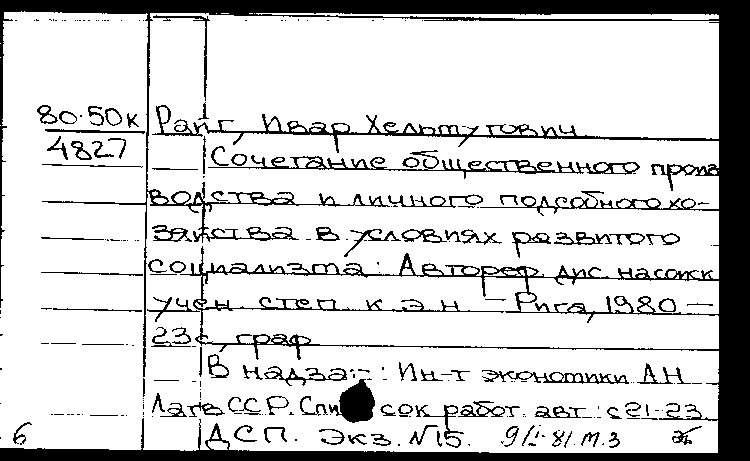 80-50к Райг, Ивар Хельмутович
4827 Сочетание общественного произ
водства и личного подсобного хо-
зяйства в условиях развитого
социализма: Автореф. дис. на соиск
учен. степ. к. э. н. – Рига, 1980 –
23с, граф
В надзаг.: Ин-т экономики АН
Латв ССР. Список работ. авт: с 21-23
6 ДСП. Экз. №15. 9/I-81 М.З